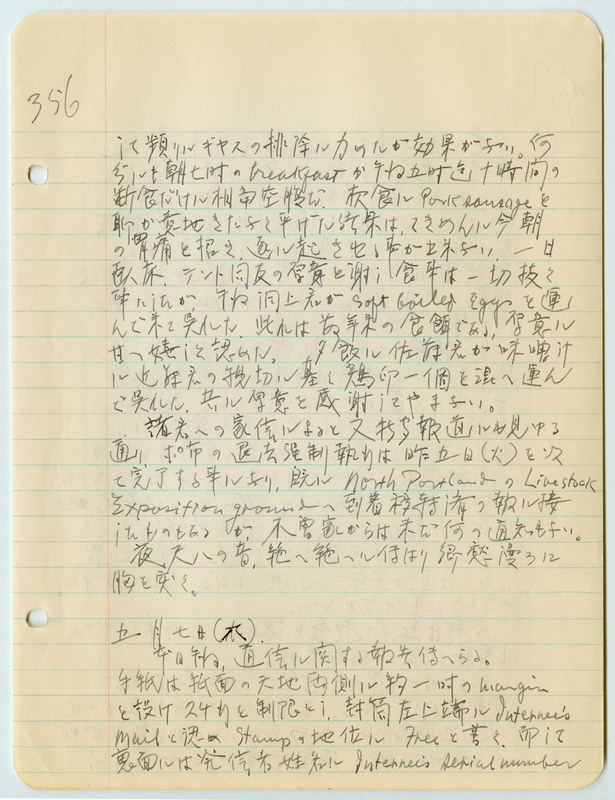 356
して頻リニギヤスの排除ニ力めたが効果がない。何
分にも朝七時のbreakfastが午后五時迄十時間の
断食だけに相当空腹だ。軟食にPork sausageを
聊か意地きたなく平げた結果は、てきめんに今朝
の胃痛を招き、遂に起きせる事が出来ない、一日
臥床、テント同友の厚意を謝し食事は一切抜く
事にしたが 午后洞上君がSoft boiled Eggsを運
んで来て呉れた、此れは苺果の食餌である、厚意に
甘へ嬉しく認めた。 夕飯に佐藤君が味噌汁
に近藤君の親切に基く鶏卵一個を混へ運ん
で呉れた、共に厚意を感謝してやまない。
諸君への家信によると又新夛報道にも見ゆる
通り、ポ市の退去強制執行は昨五日(火)を以
て完了する事になり、既にNorth PortlandのLivestock
Exposition groundへ到着移转済の報に接
したものもあるが、不曽家からは未だ何の通知もない。
夜、天への音、絶へ絶へに伝はり郷愁漫ろに
胸を突く。
五月七日(木).
本日午后、通信に関する報告伝へらる。
手紙は紙面の天地両側に約一吋のmargin
を設け 24行と制限し、封筒左上端にInternee's
Mailと認め Stampの地位に Freeと書く、而して
裏面には発信者姓名に Internee's Serial number